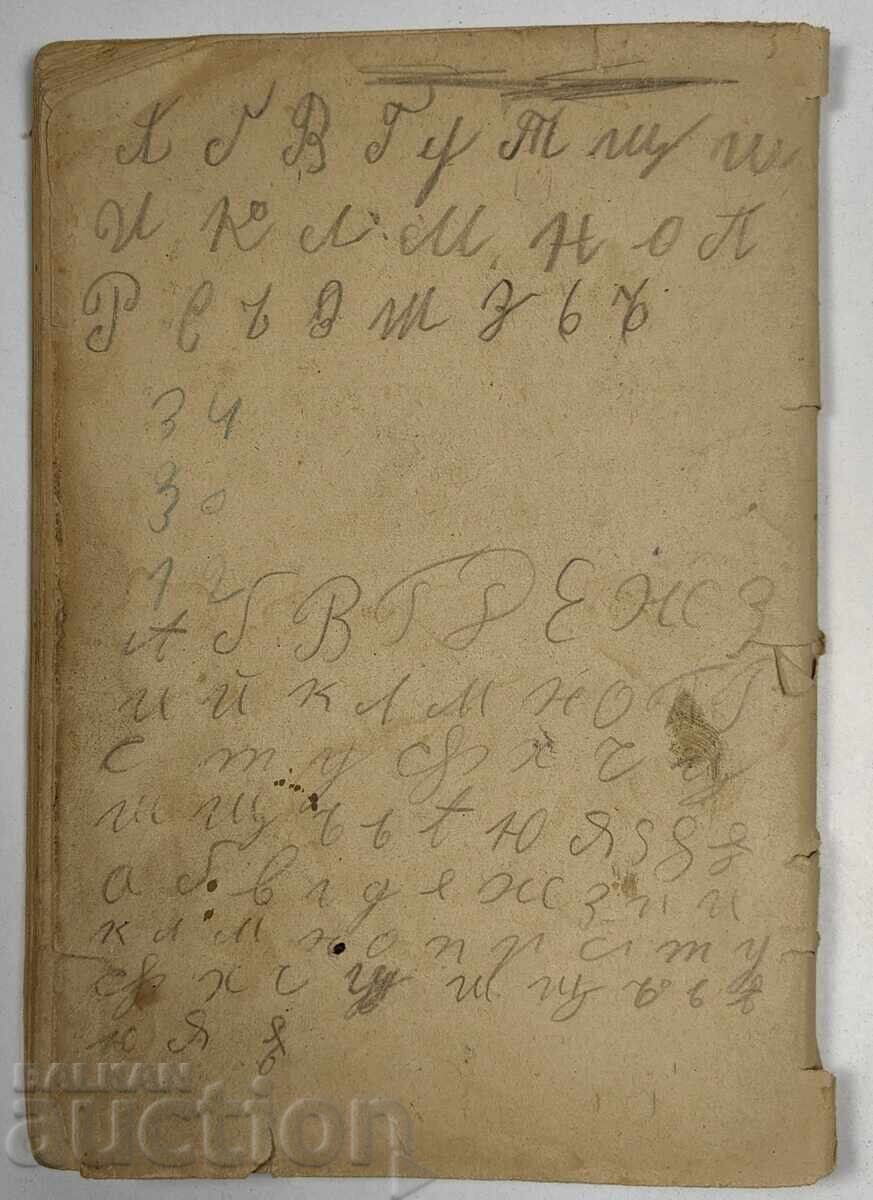 А Б В Г У Т Щ Ш
И К Л М Н О П
Р С Ъ Я Ш З Ь Ъ
34
30
12
А Б В Г Д Е Ж З
И Й К Л М Н О П Р
С Т У Ф Х Ч Ц
Ш Щ Ъ Ь Ѣ Ю Я
а б в г д е ж з и й
к л м н о п р с т у
ф х ч ц ш щ ъ ь ѣ
ю я
BALKAN
auction